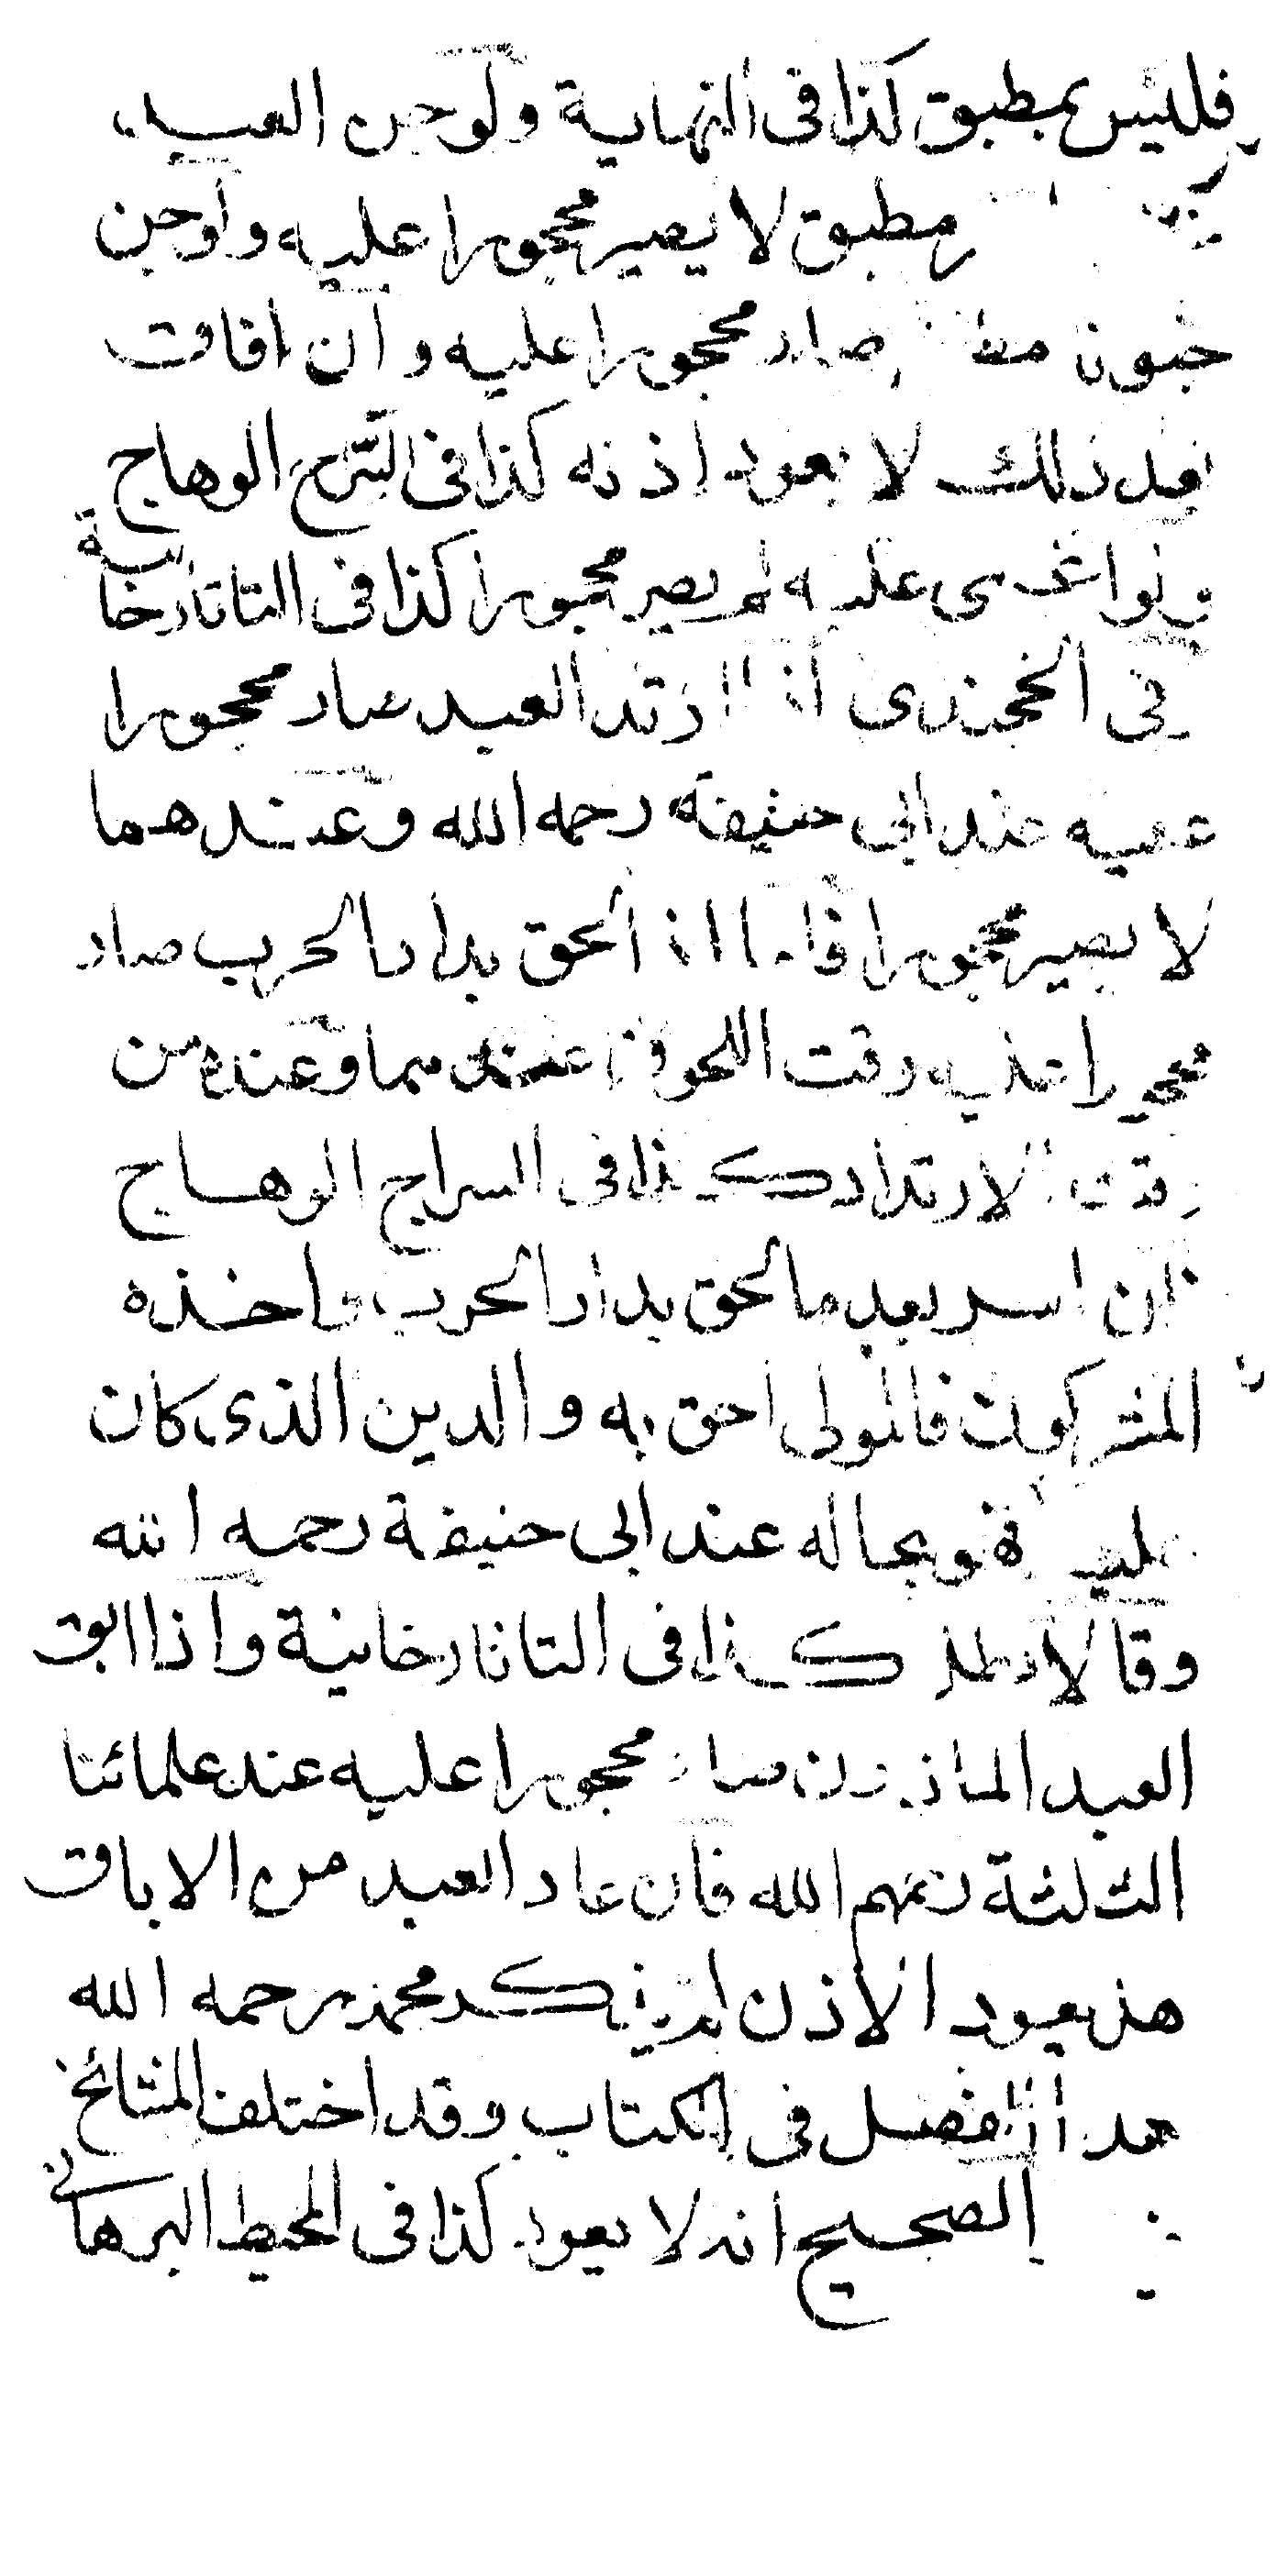 فليس بمطبق كذا في النهاية ولو جن العبد
مطبق لا يصير محجورا عليه ولو جن
جنونا صار محجورا عليه وان افاقت
بعد ذلك لا يعود اذنه كذا فى السراج الوهاج
ولو اغمى عليه لم يصر محجورا كذا فى التاتارخانية
فى الخجندى اذا ارتد العبد صار محجورا
عليه عند ابى حنيفة رحمه الله وعندهما
لا يصير محجورا فاما اذا لحق بدار الحرب صار
محجورا عليه وقت اللحوق عندهما وعنده من
وقت الارتداد كذا فى السراج الوهاج
فان اسر بعد ما لحق بدار الحرب واخذه
المشركون فالمولى احق به والدين الذى كان
عليه فهو بحاله عند ابى حنيفة رحمه الله
وقالا كذا فى التاتارخانية واذا ابق
العبد الماذون صار محجورا عليه عند علمائنا
الثلثة رحمهم الله فان عاد العبد من الاباق
هل يعود الاذن لم يذكر محمد رحمه الله
هذا الفصل فى الكتاب وقد اختلف المشائخ
الصحيح انه لا يعود كذا فى المحيط البرهانى